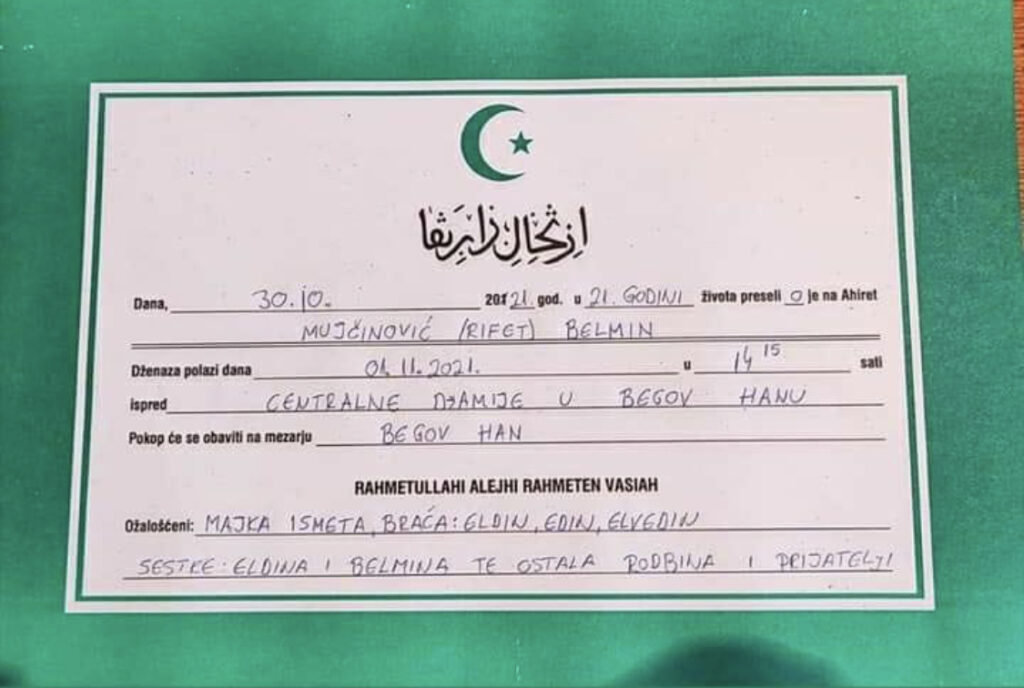 ارتحال دار بقا
Dana, 30.10. 20121. god. u 21. GODINI života preseli O je na Ahiret
MUJČINOVIĆ (RIFET) BELMIN
Dženaza polazi dana 01.11.2021. u 14 15 sati
ispred CENTRALNE DŽAMIJE U BEGOV HANU
Pokop će se obaviti na mezarju BEGOV HAN
RAHMETULLAHI ALEJHI RAHMETEN VASIAH
Ožalošćeni: MAJKA ISMETA, BRAĆA: ELDIN, EDIN, ELVEDIN
SESTRE: ELDINA I BELMINA TE OSTALA RODBINA I PRIJATELJI